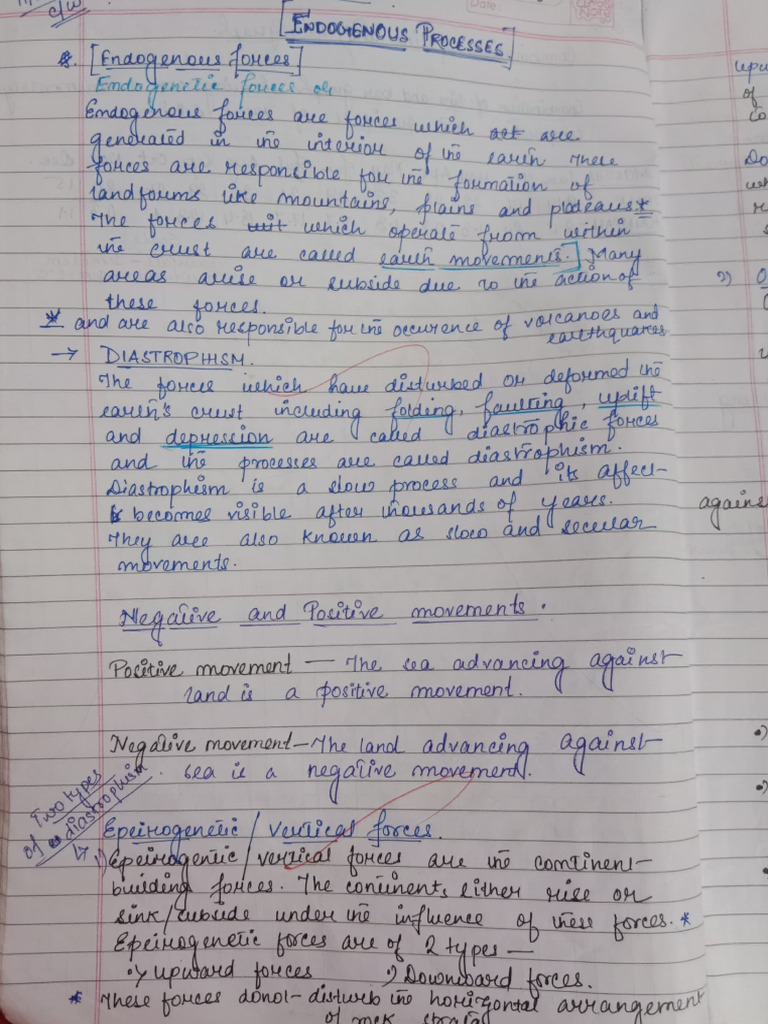 c/w
Date
[ENDOGENOUS PROCESSES]
*. [Endogenous forces]
Endogenetic forces or
Endogenous forces are forces which act are
generated in the interior of the earth These
forces are responsible for the formation of
landforms like mountains, plains and plateaus*
The forces which operate from within
the crust are called earth movements.] Many
areas arise or subside due to the action of
these forces.
* and are also responsible for the occurence of volcanoes and
earthquakes
→ DIASTROPHISM.
The forces which have disturbed or deformed the
earth's crust including folding, faulting, uplift
and depression are called diastrophic forces
and the processes are called diastrophism.
Diastrophism is a slow process and its affect
becomes visible after thousands of years.
They are also known as slow and secular
movements.
Negative and Positive movements.
Positive movement — The sea advancing against
land is a positive movement.
Negative movement — The land advancing against
sea is a negative movement.
Two types
of diastrophism
↳ Epeirogenetic / vertical forces.
1) Epeirogentic / vertical forces are the continent-
building forces. The continents either rise or
sink/subside under the influence of these forces. *
Epeirogenetic forces are of 2 types —
•) upward forces •) Downward forces.
* These forces donot disturb the horizontal arrangement
of rock strata
upw
of
co
Do
wh
2)
agains